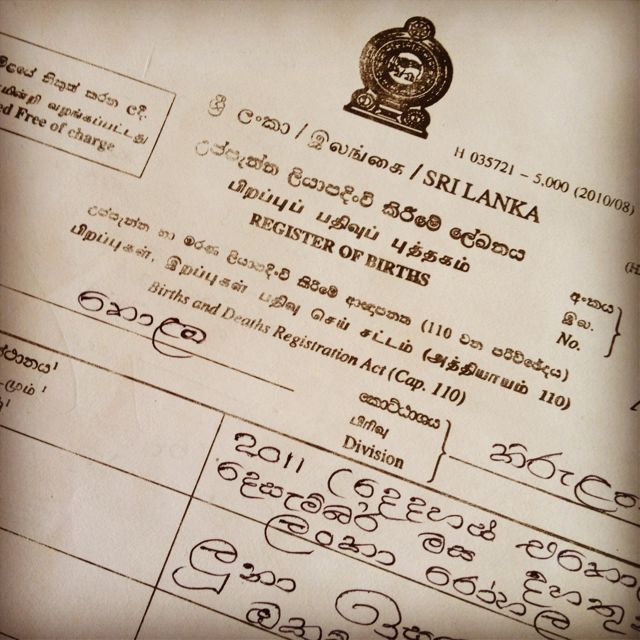 ලයේ නිකුත් කරන ලදී.
யின்றி வழங்கப்பட்டது
ed Free of charge
H 035721 – 5,000 (2010/08)
ශ්‍රී ලංකා / இலங்கை / SRI LANKA
උප්පැන්න ලියාපදිංචි කිරීමේ ලේඛනය
பிறப்புப் பதிவுப் புத்தகம்
REGISTER OF BIRTHS
උප්පැන්න හා මරණ ලියාපදිංචි කිරීමේ ආඥාපනත (110 වන පරිච්ඡේදය)
பிறப்புகள், இறப்புகள் பதிவு செய் சட்டம் (அத்தியாயம் 110)
Births and Deaths Registration Act (Cap. 110)
අංකය
இல.
No.
කොළඹ
කොට්ඨාශය
பிரிவு
Division
2011 (දෙදහස් එකො
දෙසැම්බර් මස
ලංකා රෝහල
ලූනා